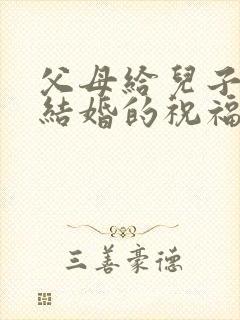 父母給兒子
結婚的祝福
三善豪德